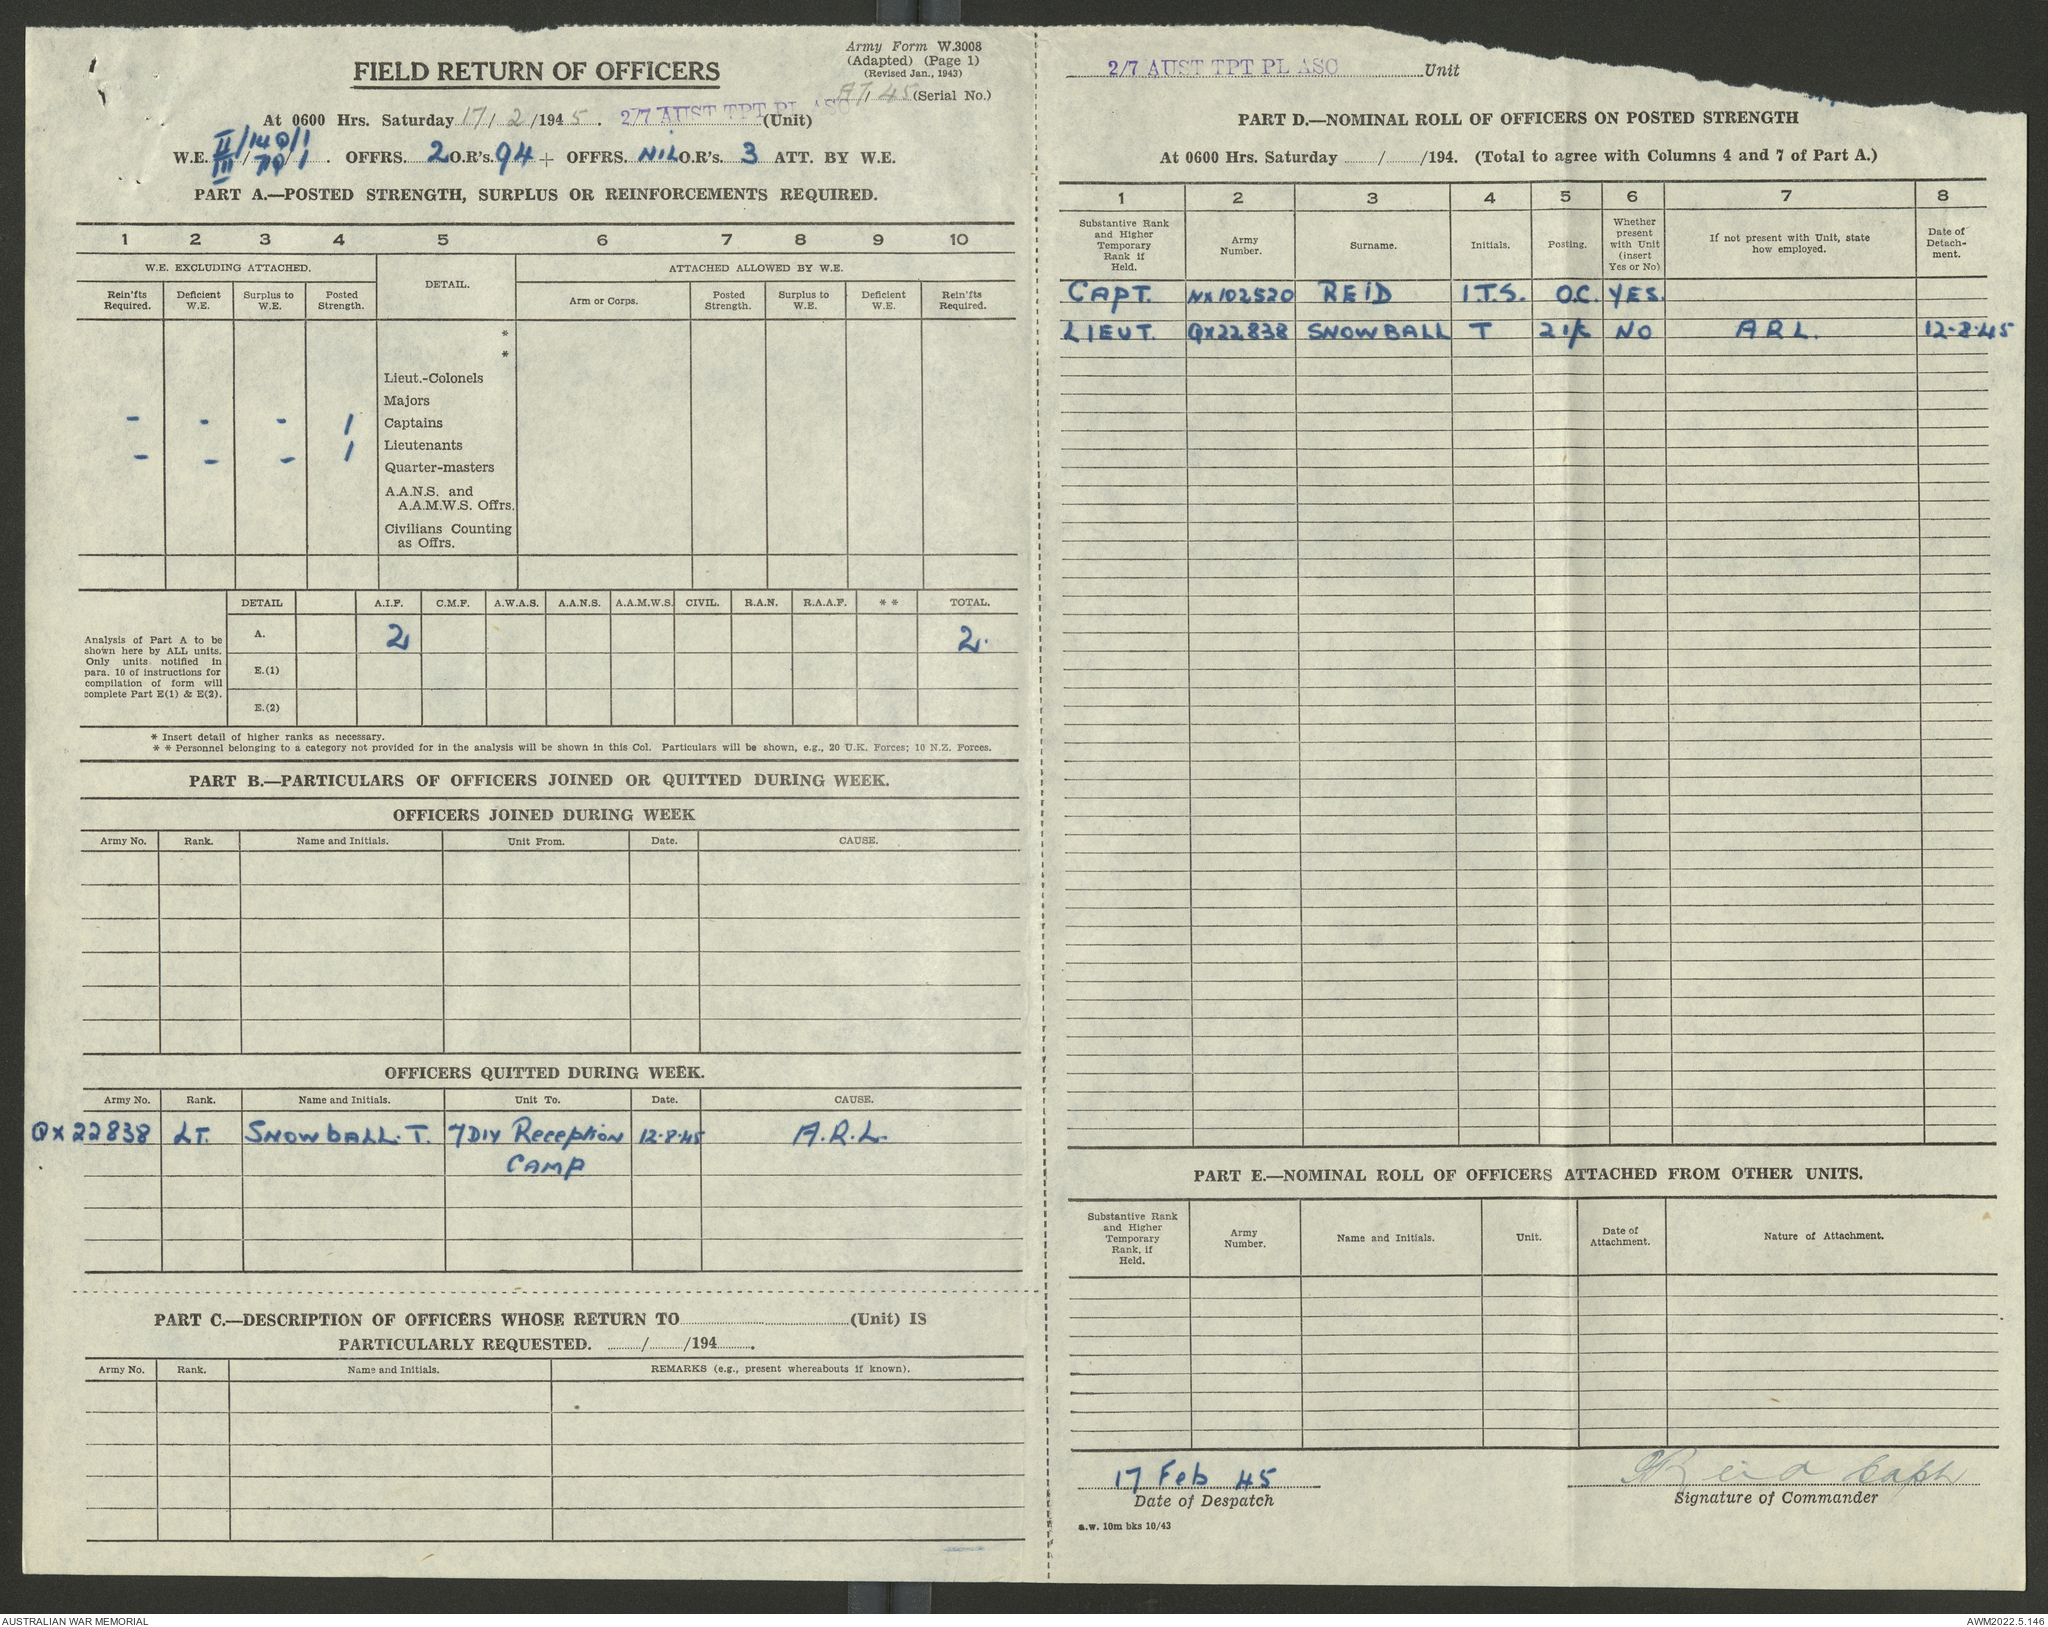 Army Form W.3008
(Adapted) (Page 1)
(Revised Jan., 1943)
FIELD RETURN OF OFFICERS
AT/ 45 (Serial No.)
At 0600 Hrs. Saturday 17/2/1945. 2/7 AUST TPT PL ASC (Unit)
II/140/1
W.E. III/70/1. OFFRS. 2 O.R's. 94 + OFFRS. NIL O.R's. 3 ATT. BY W.E.
PART A.—POSTED STRENGTH, SURPLUS OR REINFORCEMENTS REQUIRED.
1 2 3 4 5 6 7 8 9 10
W.E. EXCLUDING ATTACHED. DETAIL. ATTACHED ALLOWED BY W.E.
Rein'fts Required. Deficient W.E. Surplus to W.E. Posted Strength. Arm or Corps. Posted Strength. Surplus to W.E. Deficient W.E. Rein'fts Required.
*
*
Lieut.-Colonels
Majors
- - - 1 Captains
- - - 1 Lieutenants
Quarter-masters
A.A.N.S. and
A.A.M.W.S. Offrs.
Civilians Counting
as Offrs.
DETAIL A.I.F. C.M.F. A.W.A.S. A.A.N.S. A.A.M.W.S. CIVIL. R.A.N. R.A.A.F. * * TOTAL.
Analysis of Part A to be
shown here by ALL units.
Only units notified in
para. 10 of instructions for
compilation of form will
complete Part E(1) & E(2).
A. 2 2.
E.(1)
E.(2)
* Insert detail of higher ranks as necessary.
* * Personnel belonging to a category not provided for in the analysis will be shown in this Col. Particulars will be shown, e.g., 20 U.K. Forces; 10 N.Z. Forces.
PART B.—PARTICULARS OF OFFICERS JOINED OR QUITTED DURING WEEK.
OFFICERS JOINED DURING WEEK
Army No. Rank. Name and Initials. Unit From. Date. CAUSE.
OFFICERS QUITTED DURING WEEK.
Army No. Rank. Name and Initials. Unit To. Date. CAUSE.
QX22838 LT. SNOWBALL. T. 7 DIV Reception 12-8-45 A.R.L.
CAMP
PART C.—DESCRIPTION OF OFFICERS WHOSE RETURN TO (Unit) IS
PARTICULARLY REQUESTED. / /194 .
Army No. Rank. Name and Initials. REMARKS (e.g., present whereabouts if known).
2/7 AUST TPT PL ASC Unit
PART D.—NOMINAL ROLL OF OFFICERS ON POSTED STRENGTH
At 0600 Hrs. Saturday / /194. (Total to agree with Columns 4 and 7 of Part A.)
1 2 3 4 5 6 7 8
Substantive Rank and Higher Temporary Rank if Held. Army Number. Surname. Initials. Posting. Whether present with Unit (insert Yes or No) If not present with Unit, state how employed. Date of Detach-ment.
CAPT. NX102520 REID I.T.S. O.C. YES.
LIEUT. QX22838 SNOWBALL T 2 i/c NO A R L. 12-8-45
PART E.—NOMINAL ROLL OF OFFICERS ATTACHED FROM OTHER UNITS.
Substantive Rank and Higher Temporary Rank, if Held. Army Number. Name and Initials. Unit. Date of Attachment. Nature of Attachment.
17 Feb 45 Reid Capt
Date of Despatch Signature of Commander
a.w. 10m bks 10/43
AUSTRALIAN WAR MEMORIAL AWM2022.5.146